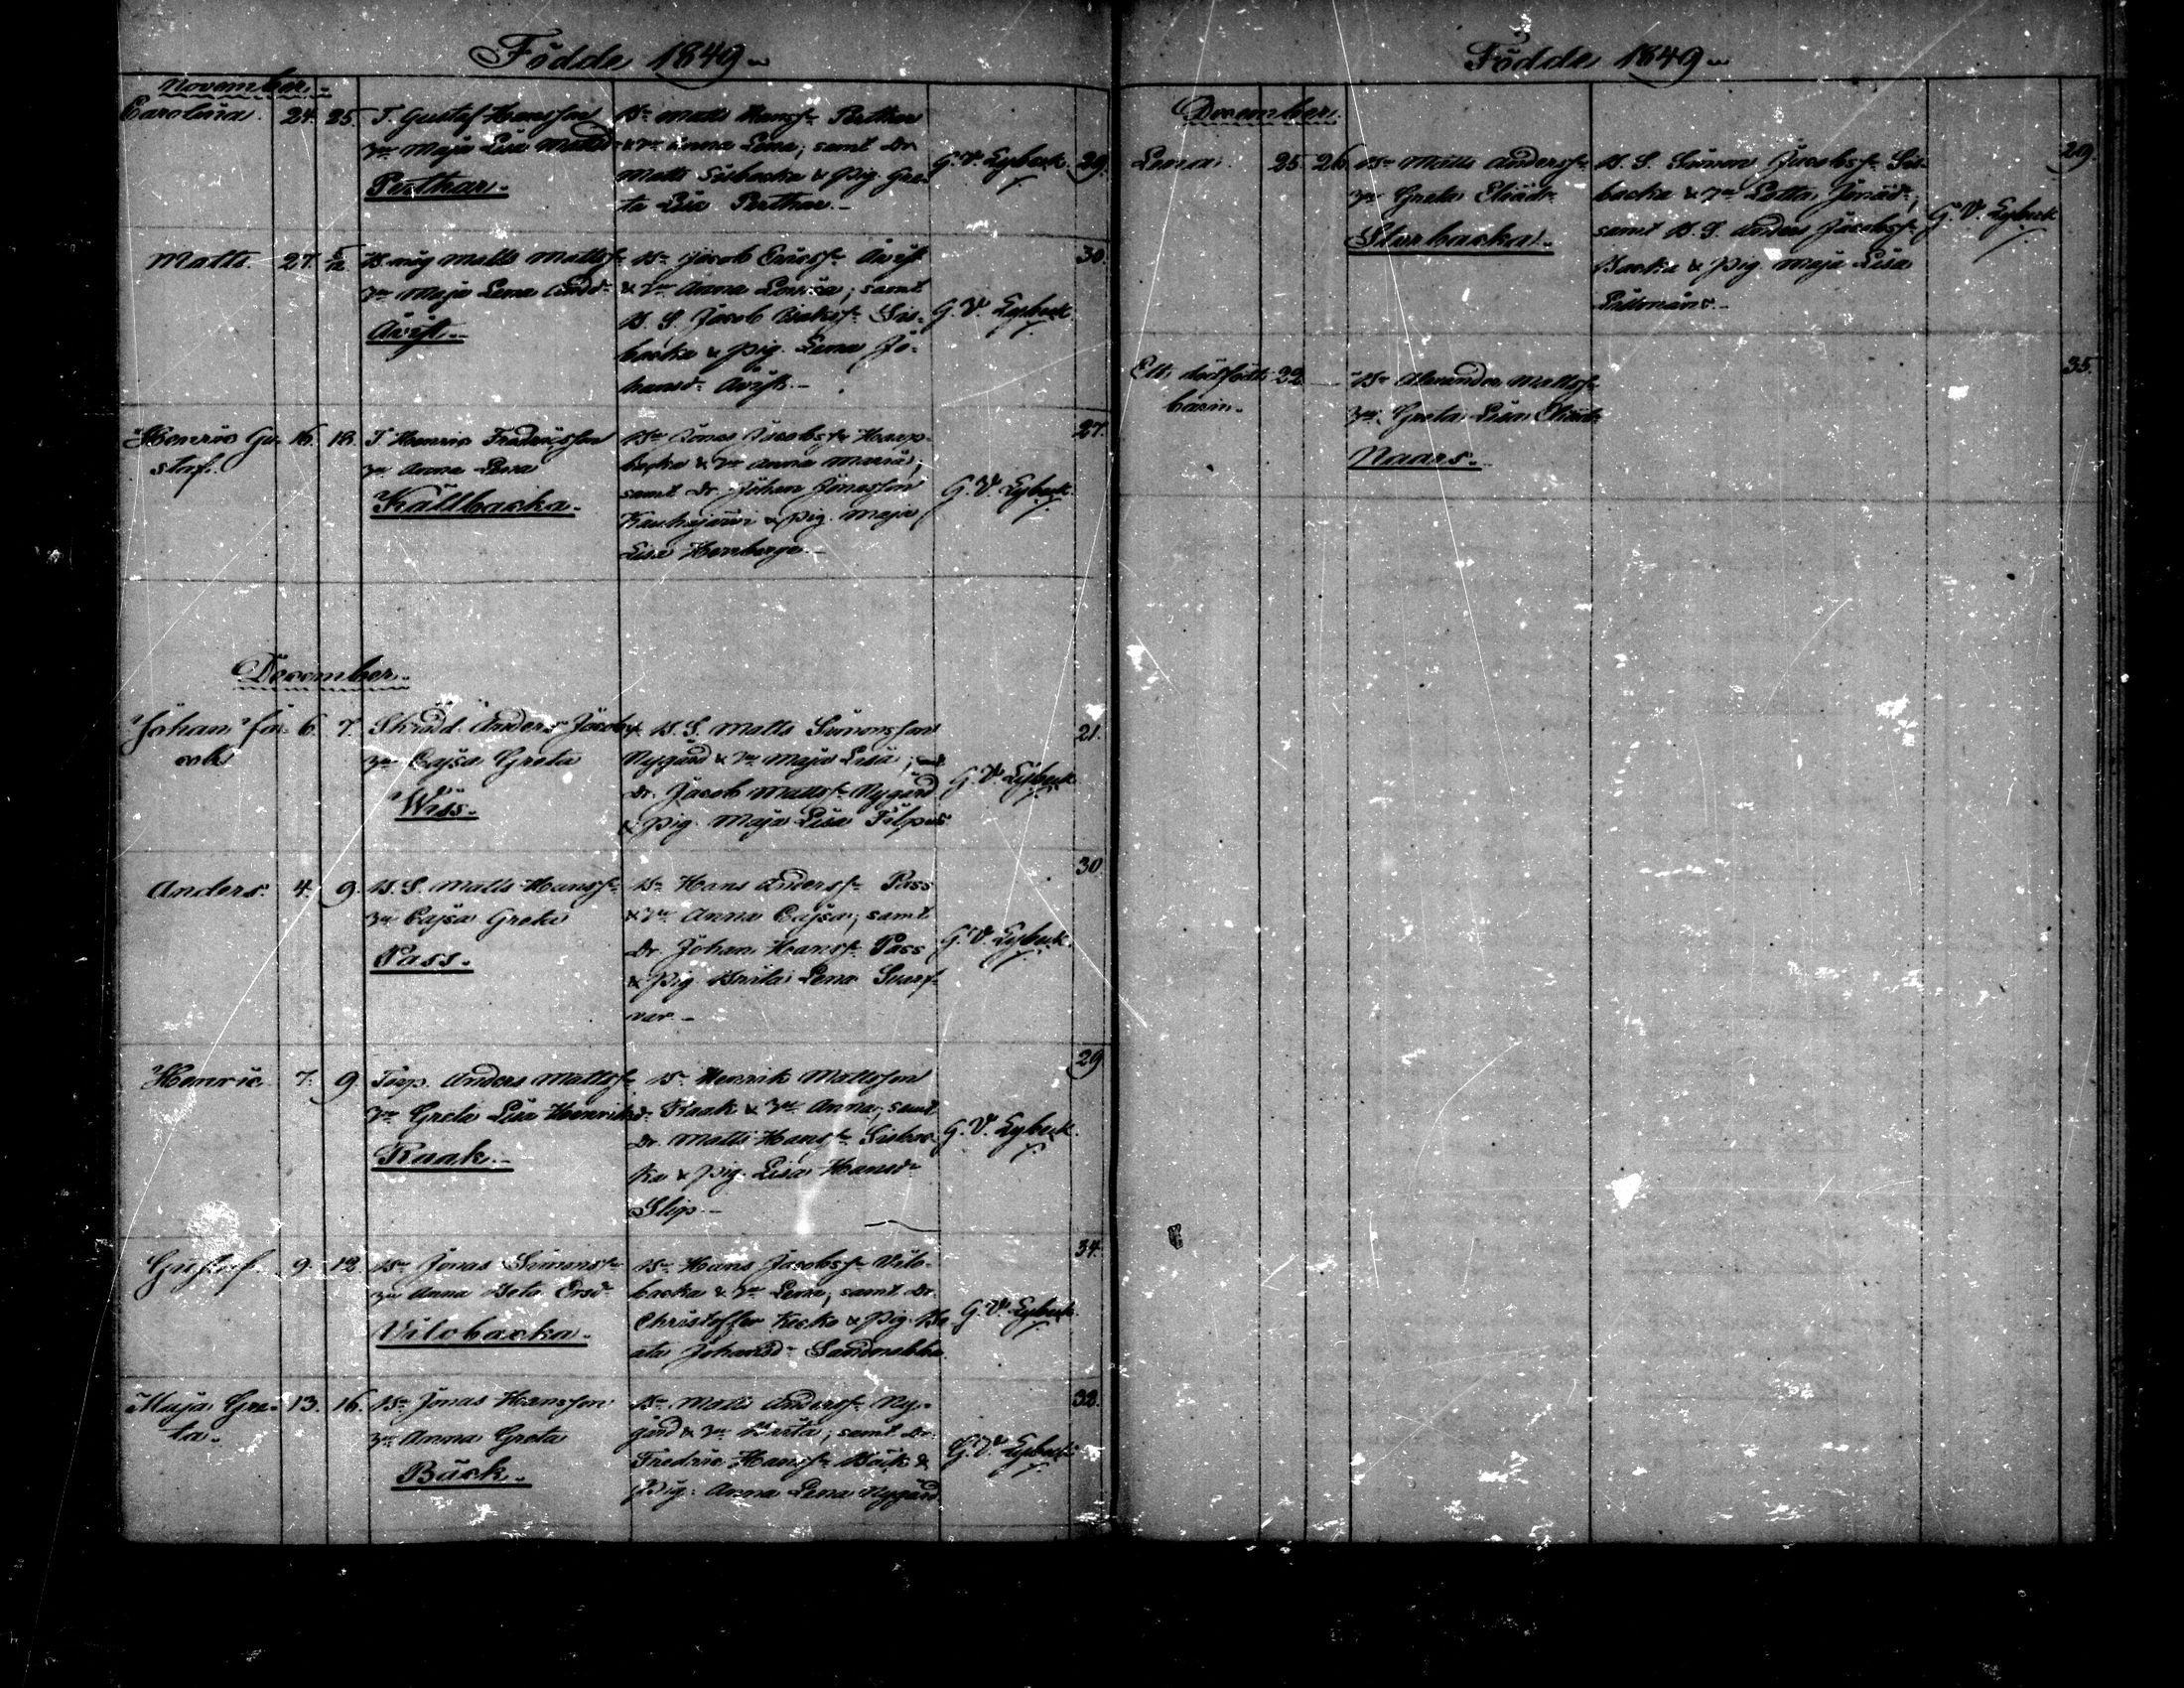 Födde 1849
November.
Carolina. 24. 25. T. Gustaf Hansson
hu Maja Lisa Mattsd.
Perthar.
Bn Matts Hanss. Perthar
& hu Anna Lena; samt Dr.
Matts Sisbacka & Pig. Gre-
ta Lisa Perthar.
G. V. Eybeck. 29.
Matts. 27. 5/12 B. måg Matts Mattss.
hu Maja Lena Andd.
Åvist.
Bn Jacob Ericss. Åvist
& hu Anna Lovisa; samt
B. S. Jacob Isakss. Sis-
backa & Pig. Lena Jo-
hansd. Åvist.
G. V. Eybeck 30.
Henric Gu- 16. 18. T. Henric Fredricsson
staf. hu Anna Lena
Källbacka.
Bn Jonas Jacobss. Haap-
backa & hu Anna Maria;
samt Dr. Johan Jonasson
Kauhajärvi & Pig. Maja
Lisa Herrberga.
G. V. Eybeck 27.
December.
Johan Ja- 6. 7. Skräd. Anders Jacobss.
cob hu Cajsa Greta
Wiss.
B. S. Matts Simonsson
Nygård & hu Maja Lisa; samt
Dr. Jacob Mattss. Nygård
& Pig. Maja Lisa Filpus
G. V. Eybeck 21.
Anders. 4. 9. B. S. Matts Hanss.
hu Cajsa Greta
Pass.
Bn Hans Anderss. Pass
& hu Anna Cajsa; samt
Dr. Johan Hanss. Pass
& Pig. Brita Lena Svarf-
var.
G. V. Eybeck. 30
Henric 7. 9. Torp. Anders Mattss.
hu Greta Lisa Henriksd.
Kaak.
Bn Henrik Mattsson
Kaak & hu Anna; samt
Dr. Matts Hanss. Sisbac-
ka & Pig. Lisa Hansd.
Slip.
G. V. Eybeck. 29
Gustaf. 9. 12. Bn Jonas Simonss.
hu Anna Beta Ersd.
Vilobacka.
Bn Hans Jacobss. Vilo-
backa & hu Lena; samt Dr.
Christoffer Kecko & Pig. Be-
ata Johansd. Sandnabba
G. V. Eybeck. 34.
Maja Gre- 13. 16. Bn Jonas Hansson
ta. hu Anna Greta
Bäck.
Bn Matts Anderss. Ny-
gård & hu Brita; samt Dr.
Fredric Hanss. Bäck &
Pig. Anna Lena Nygård
G. V. Eybeck 32.
Födde 1849
December.
Lena. 25. 26. Bn Matts Anderss.
hu Greta Eliæd.
Storbacka.
B. S. Simon Jacobss. Sis-
backa & hu Lotta Jonæd.;
samt B. S. Anders Jacobss.
Backa & Pig. Maja Lisa
G. V. Eybeck 29
Ett dödfödt 22 Bn Alexander Mattss.
barn. hu Greta Lisa Eliæd.
Naars.
35.